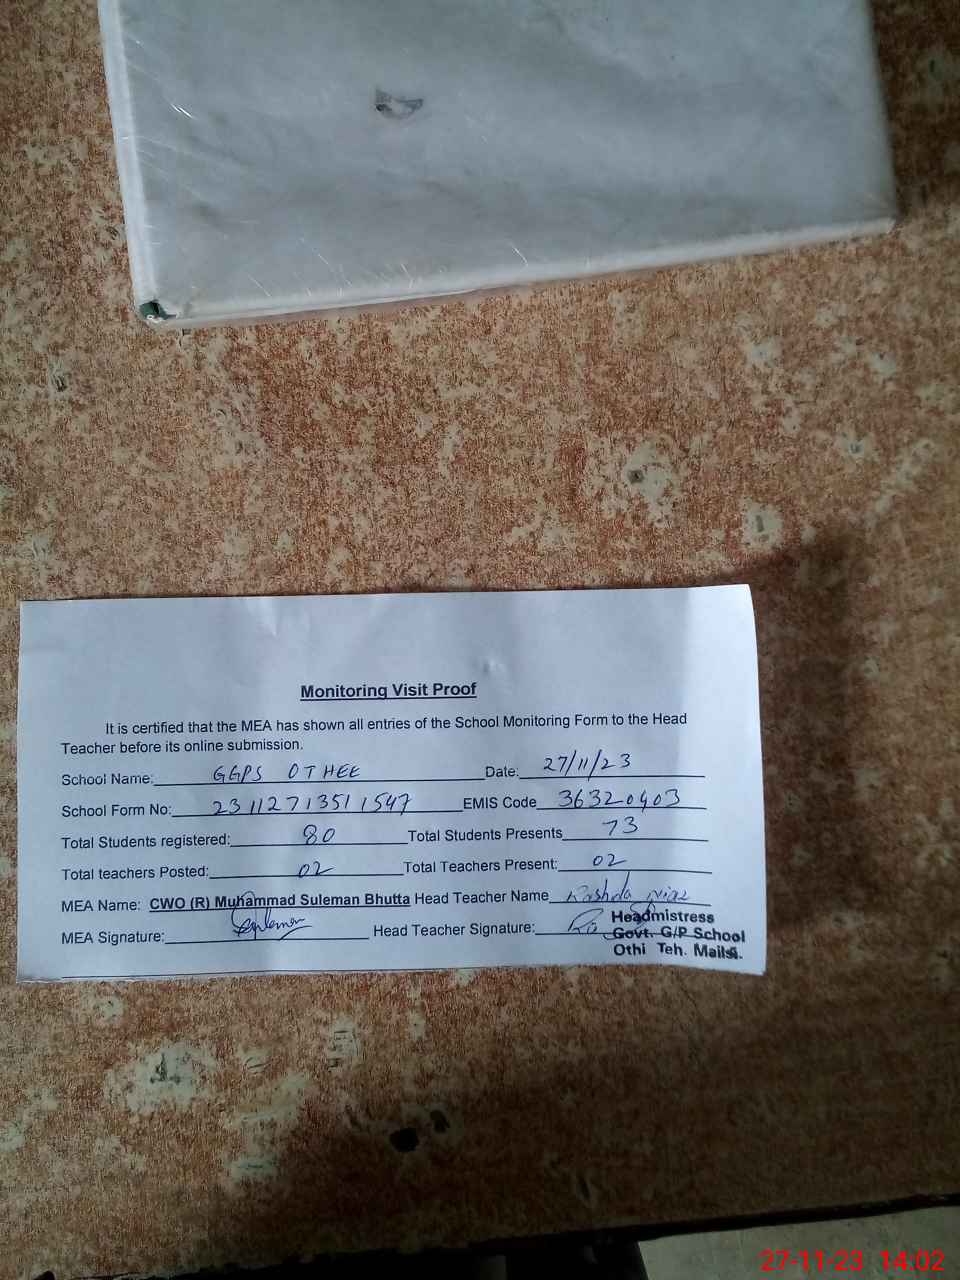 Monitoring Visit Proof
It is certified that the MEA has shown all entries of the School Monitoring Form to the Head
Teacher before its online submission.
School Name: GGPS OTHEE Date: 27/11/23
School Form No: 23112713511547 EMIS Code 36320403
Total Students registered: 80 Total Students Presents 73
Total teachers Posted: 02 Total Teachers Present: 02
MEA Name: CWO (R) Muhammad Suleman Bhutta Head Teacher Name Rashda Niaz
MEA Signature: Suleman Head Teacher Signature:
Headmistress
Govt. G/P School
Othi Teh. Mailsi.
27-11-23 14:02